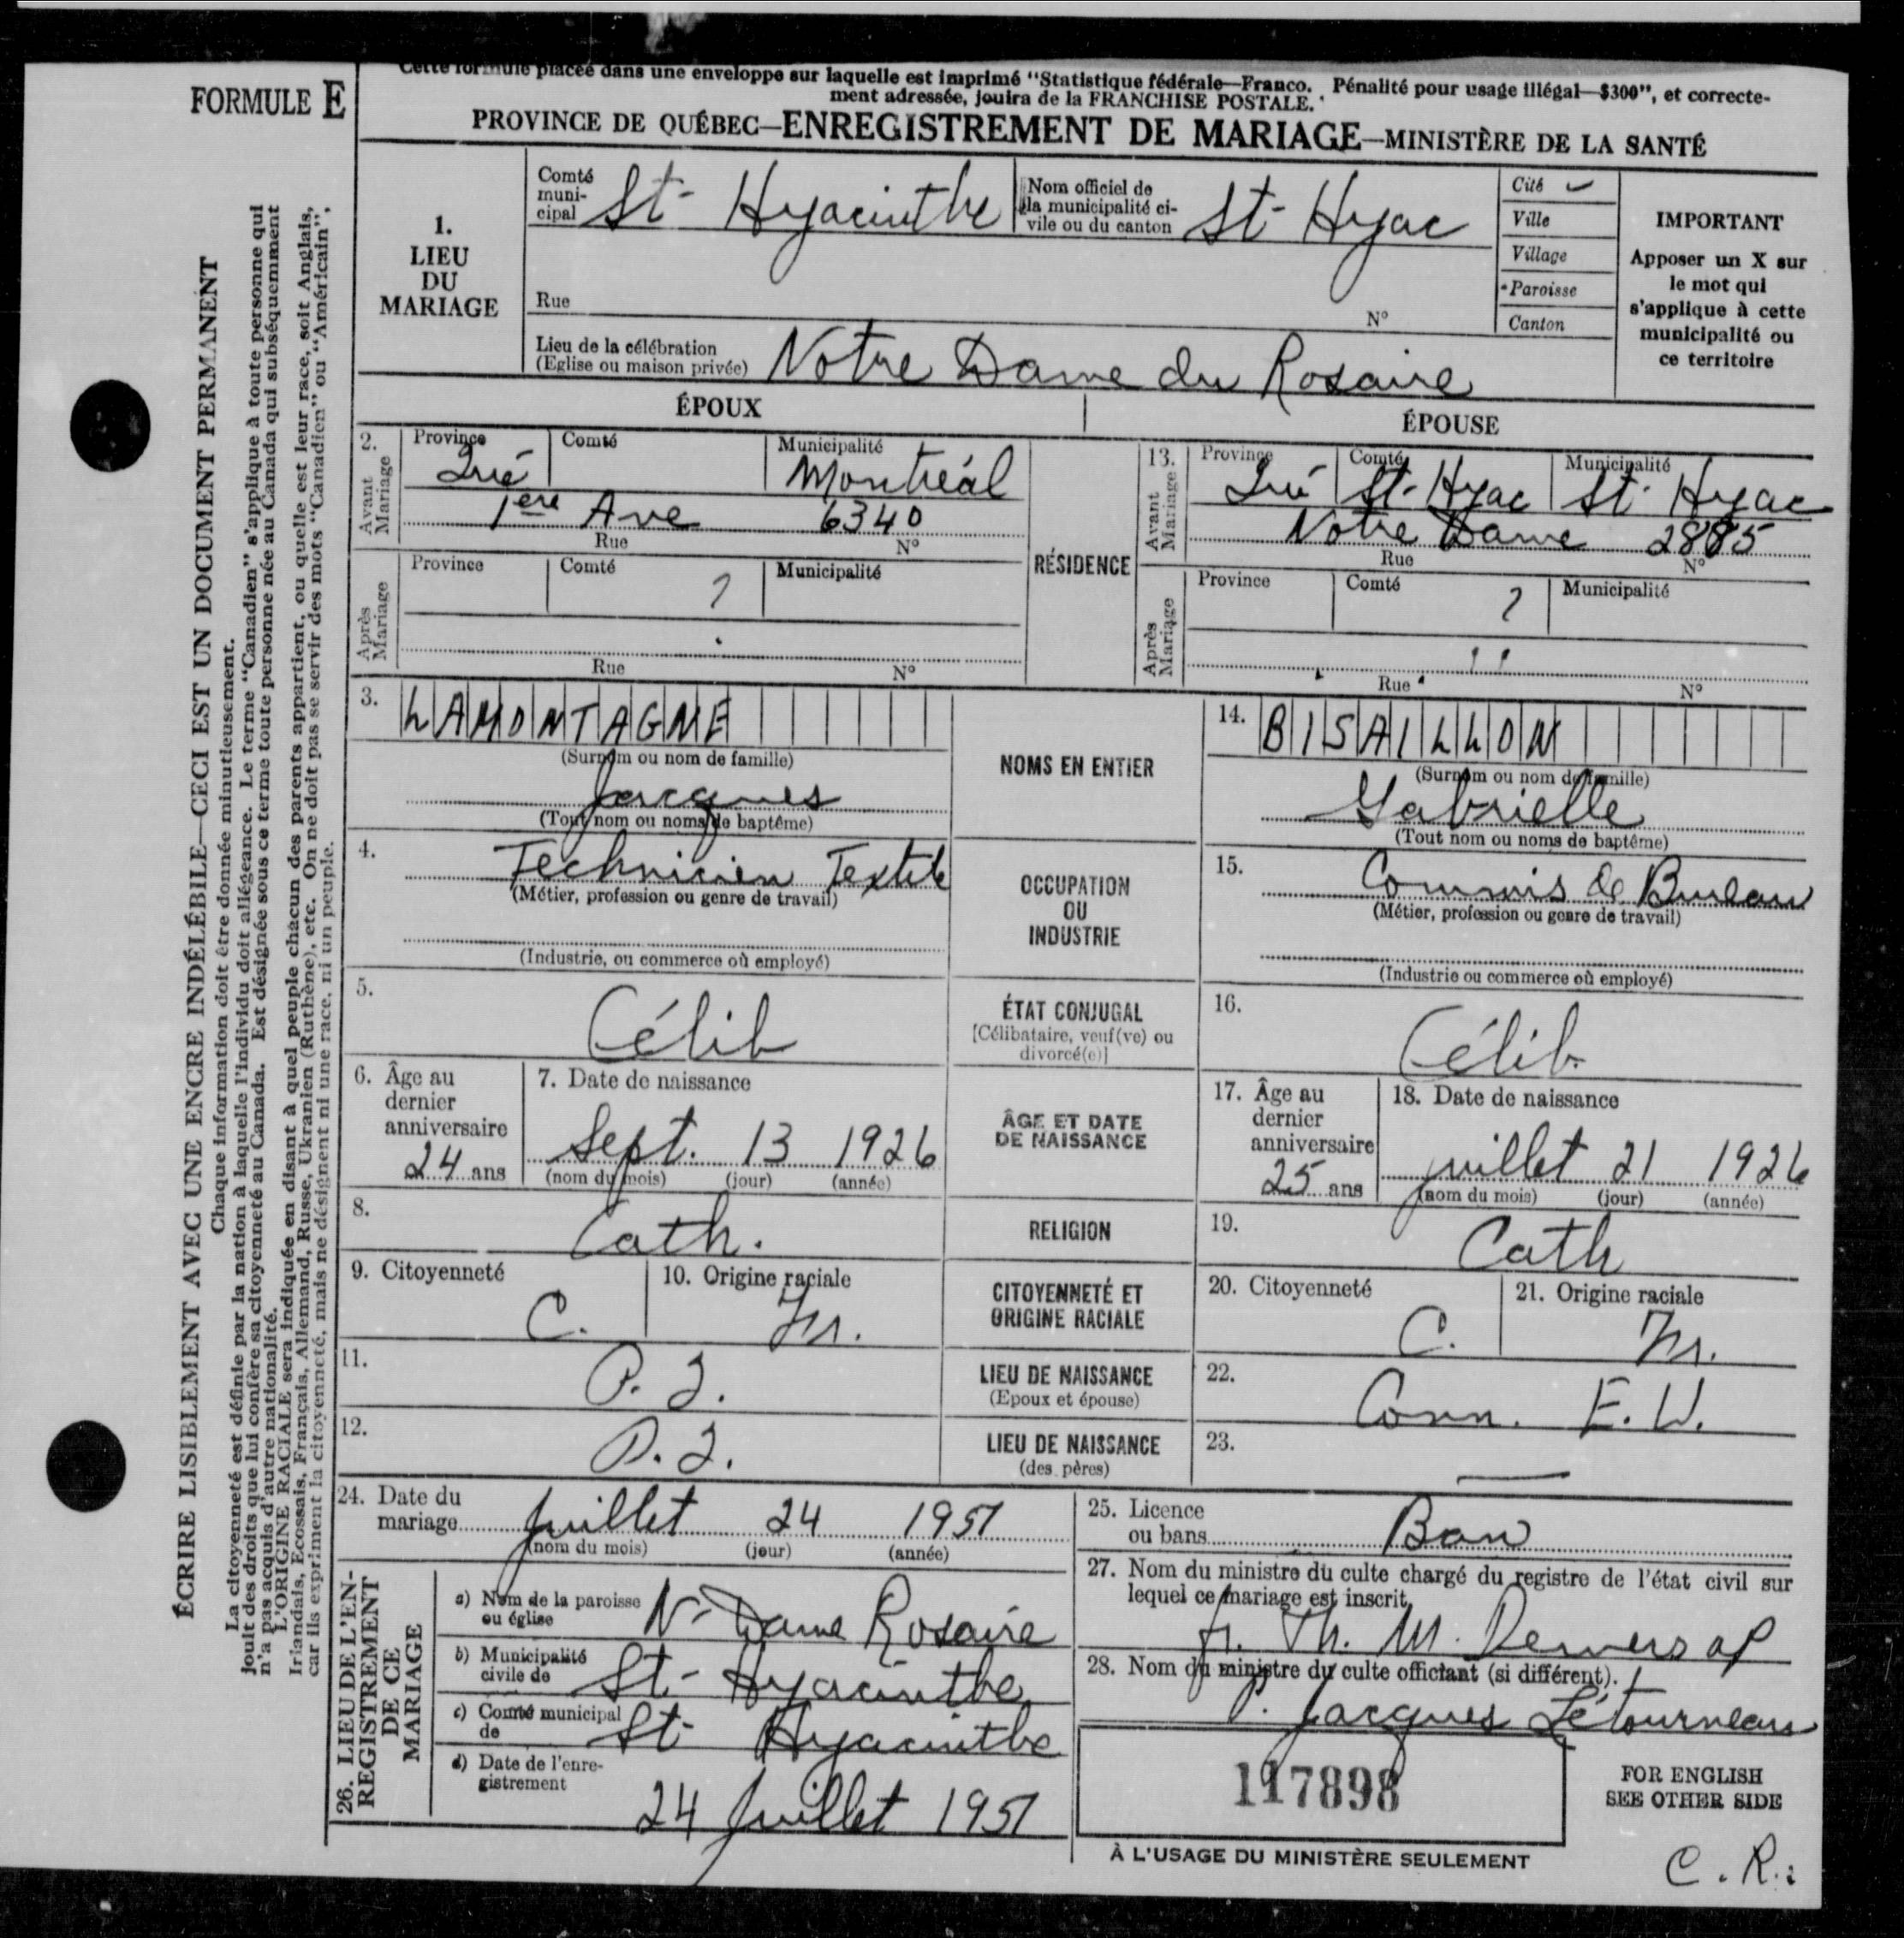 FORMULE E
Cette formule placée dans une enveloppe sur laquelle est imprimé "Statistique fédérale—Franco. Pénalité pour usage illégal—$300", et correcte-
ment adressée, jouira de la FRANCHISE POSTALE.
PROVINCE DE QUÉBEC—ENREGISTREMENT DE MARIAGE—MINISTÈRE DE LA SANTÉ
ÉCRIRE LISIBLEMENT AVEC UNE ENCRE INDÉLÉBILE—CECI EST UN DOCUMENT PERMANENT
Chaque information doit être donnée minutieusement.
La citoyenneté est définie par la nation à laquelle l'individu doit allégeance. Le terme "Canadien" s'applique à toute personne qui
jouit des droits que lui confère sa citoyenneté au Canada. Est désignée sous ce terme toute personne née au Canada qui subséquemment
n'a pas acquis d'autre nationalité.
L'ORIGINE RACIALE sera indiquée en disant à quel peuple chacun des parents appartient, ou quelle est leur race, soit Anglais,
Irlandais, Ecossais, Français, Allemand, Russe, Ukranien (Ruthène), etc. On ne doit pas se servir des mots "Canadien" ou "Américain",
car ils expriment la citoyenneté, mais ne désignent ni une race, ni un peuple.
1.
LIEU
DU
MARIAGE
Comté
muni-
cipal St- Hyacinthe
Nom officiel de
la municipalité ci-
vile ou du canton St- Hyac
Cité
Ville
Village
Paroisse
Canton
IMPORTANT
Apposer un X sur
le mot qui
s'applique à cette
municipalité ou
ce territoire
Rue N°
Lieu de la célébration
(Eglise ou maison privée) Notre Dame du Rosaire
ÉPOUX ÉPOUSE
2. Avant Mariage
Province Comté Municipalité
Qué Montréal
1ère Ave 6340
Rue N°
RÉSIDENCE
13. Avant Mariage
Province Comté Municipalité
Qué St- Hyac St- Hyac
Notre Dame 2885
Rue N°
Après Mariage
Province Comté Municipalité
?
Rue N°
Après Mariage
Province Comté Municipalité
?
Rue N°
3. LAMONTAGNE
(Surnom ou nom de famille)
Jacques
(Tout nom ou noms de baptême)
NOMS EN ENTIER
14. BISAILLON
(Surnom ou nom de famille)
Gabrielle
(Tout nom ou noms de baptême)
4. Technicien Textile
(Métier, profession ou genre de travail)
(Industrie, ou commerce où employé)
OCCUPATION
OU
INDUSTRIE
15. Commis de Bureau
(Métier, profession ou genre de travail)
(Industrie ou commerce où employé)
5. Célib
ÉTAT CONJUGAL
[Célibataire, veuf(ve) ou
divorcé(e)]
16. Célib.
6. Âge au
dernier
anniversaire
24 ans
7. Date de naissance
Sept. 13 1926
(nom du mois) (jour) (année)
ÂGE ET DATE
DE NAISSANCE
17. Âge au
dernier
anniversaire
25 ans
18. Date de naissance
juillet 21 1926
(nom du mois) (jour) (année)
8. Cath.
RELIGION
19. Cath
9. Citoyenneté
C.
10. Origine raciale
Fr.
CITOYENNETÉ ET
ORIGINE RACIALE
20. Citoyenneté
C.
21. Origine raciale
Fr.
11. P. Q.
LIEU DE NAISSANCE
(Epoux et épouse)
22. Conn. E. U.
12. P. Q.
LIEU DE NAISSANCE
(des pères)
23. —
24. Date du
mariage Juillet 24 1951
(nom du mois) (jour) (année)
25. Licence
ou bans Ban
26. LIEU DE L'EN-
REGISTREMENT
DE CE
MARIAGE
a) Nom de la paroisse
ou église N- Dame Rosaire
b) Municipalité
civile de St- Hyacinthe
c) Comté municipal
de St- Hyacinthe
d) Date de l'enre-
gistrement
24 Juillet 1951
27. Nom du ministre du culte chargé du registre de l'état civil sur
lequel ce mariage est inscrit
fr. Th. M. Demers op
28. Nom du ministre du culte officiant (si différent).
P. Jacques Létourneau
117898
À L'USAGE DU MINISTÈRE SEULEMENT
FOR ENGLISH
SEE OTHER SIDE
C. R.